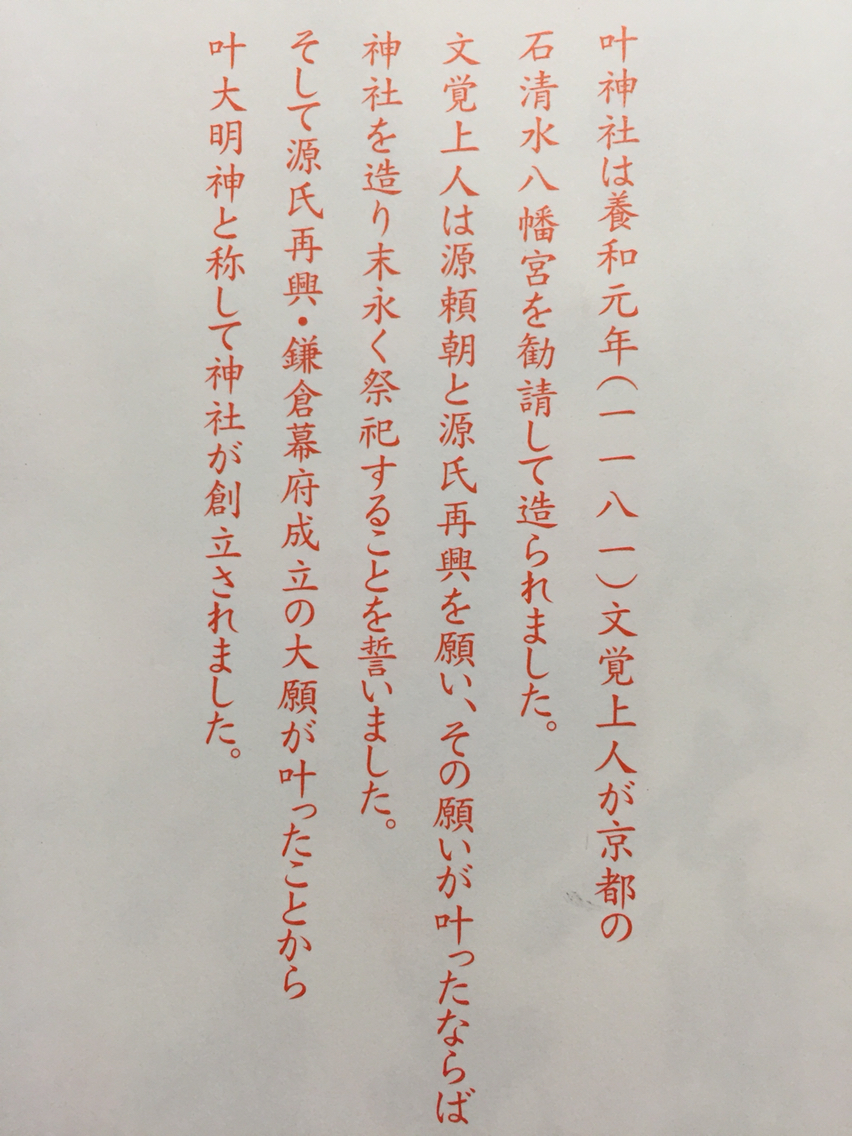 叶神社は養和元年(一一八一)文覚上人が京都の
石清水八幡宮を勧請して造られました。
文覚上人は源頼朝と源氏再興を願い、その願いが叶ったならば
神社を造り末永く祭祀することを誓いました。
そして源氏再興・鎌倉幕府成立の大願が叶ったことから
叶大明神と称して神社が創立されました。